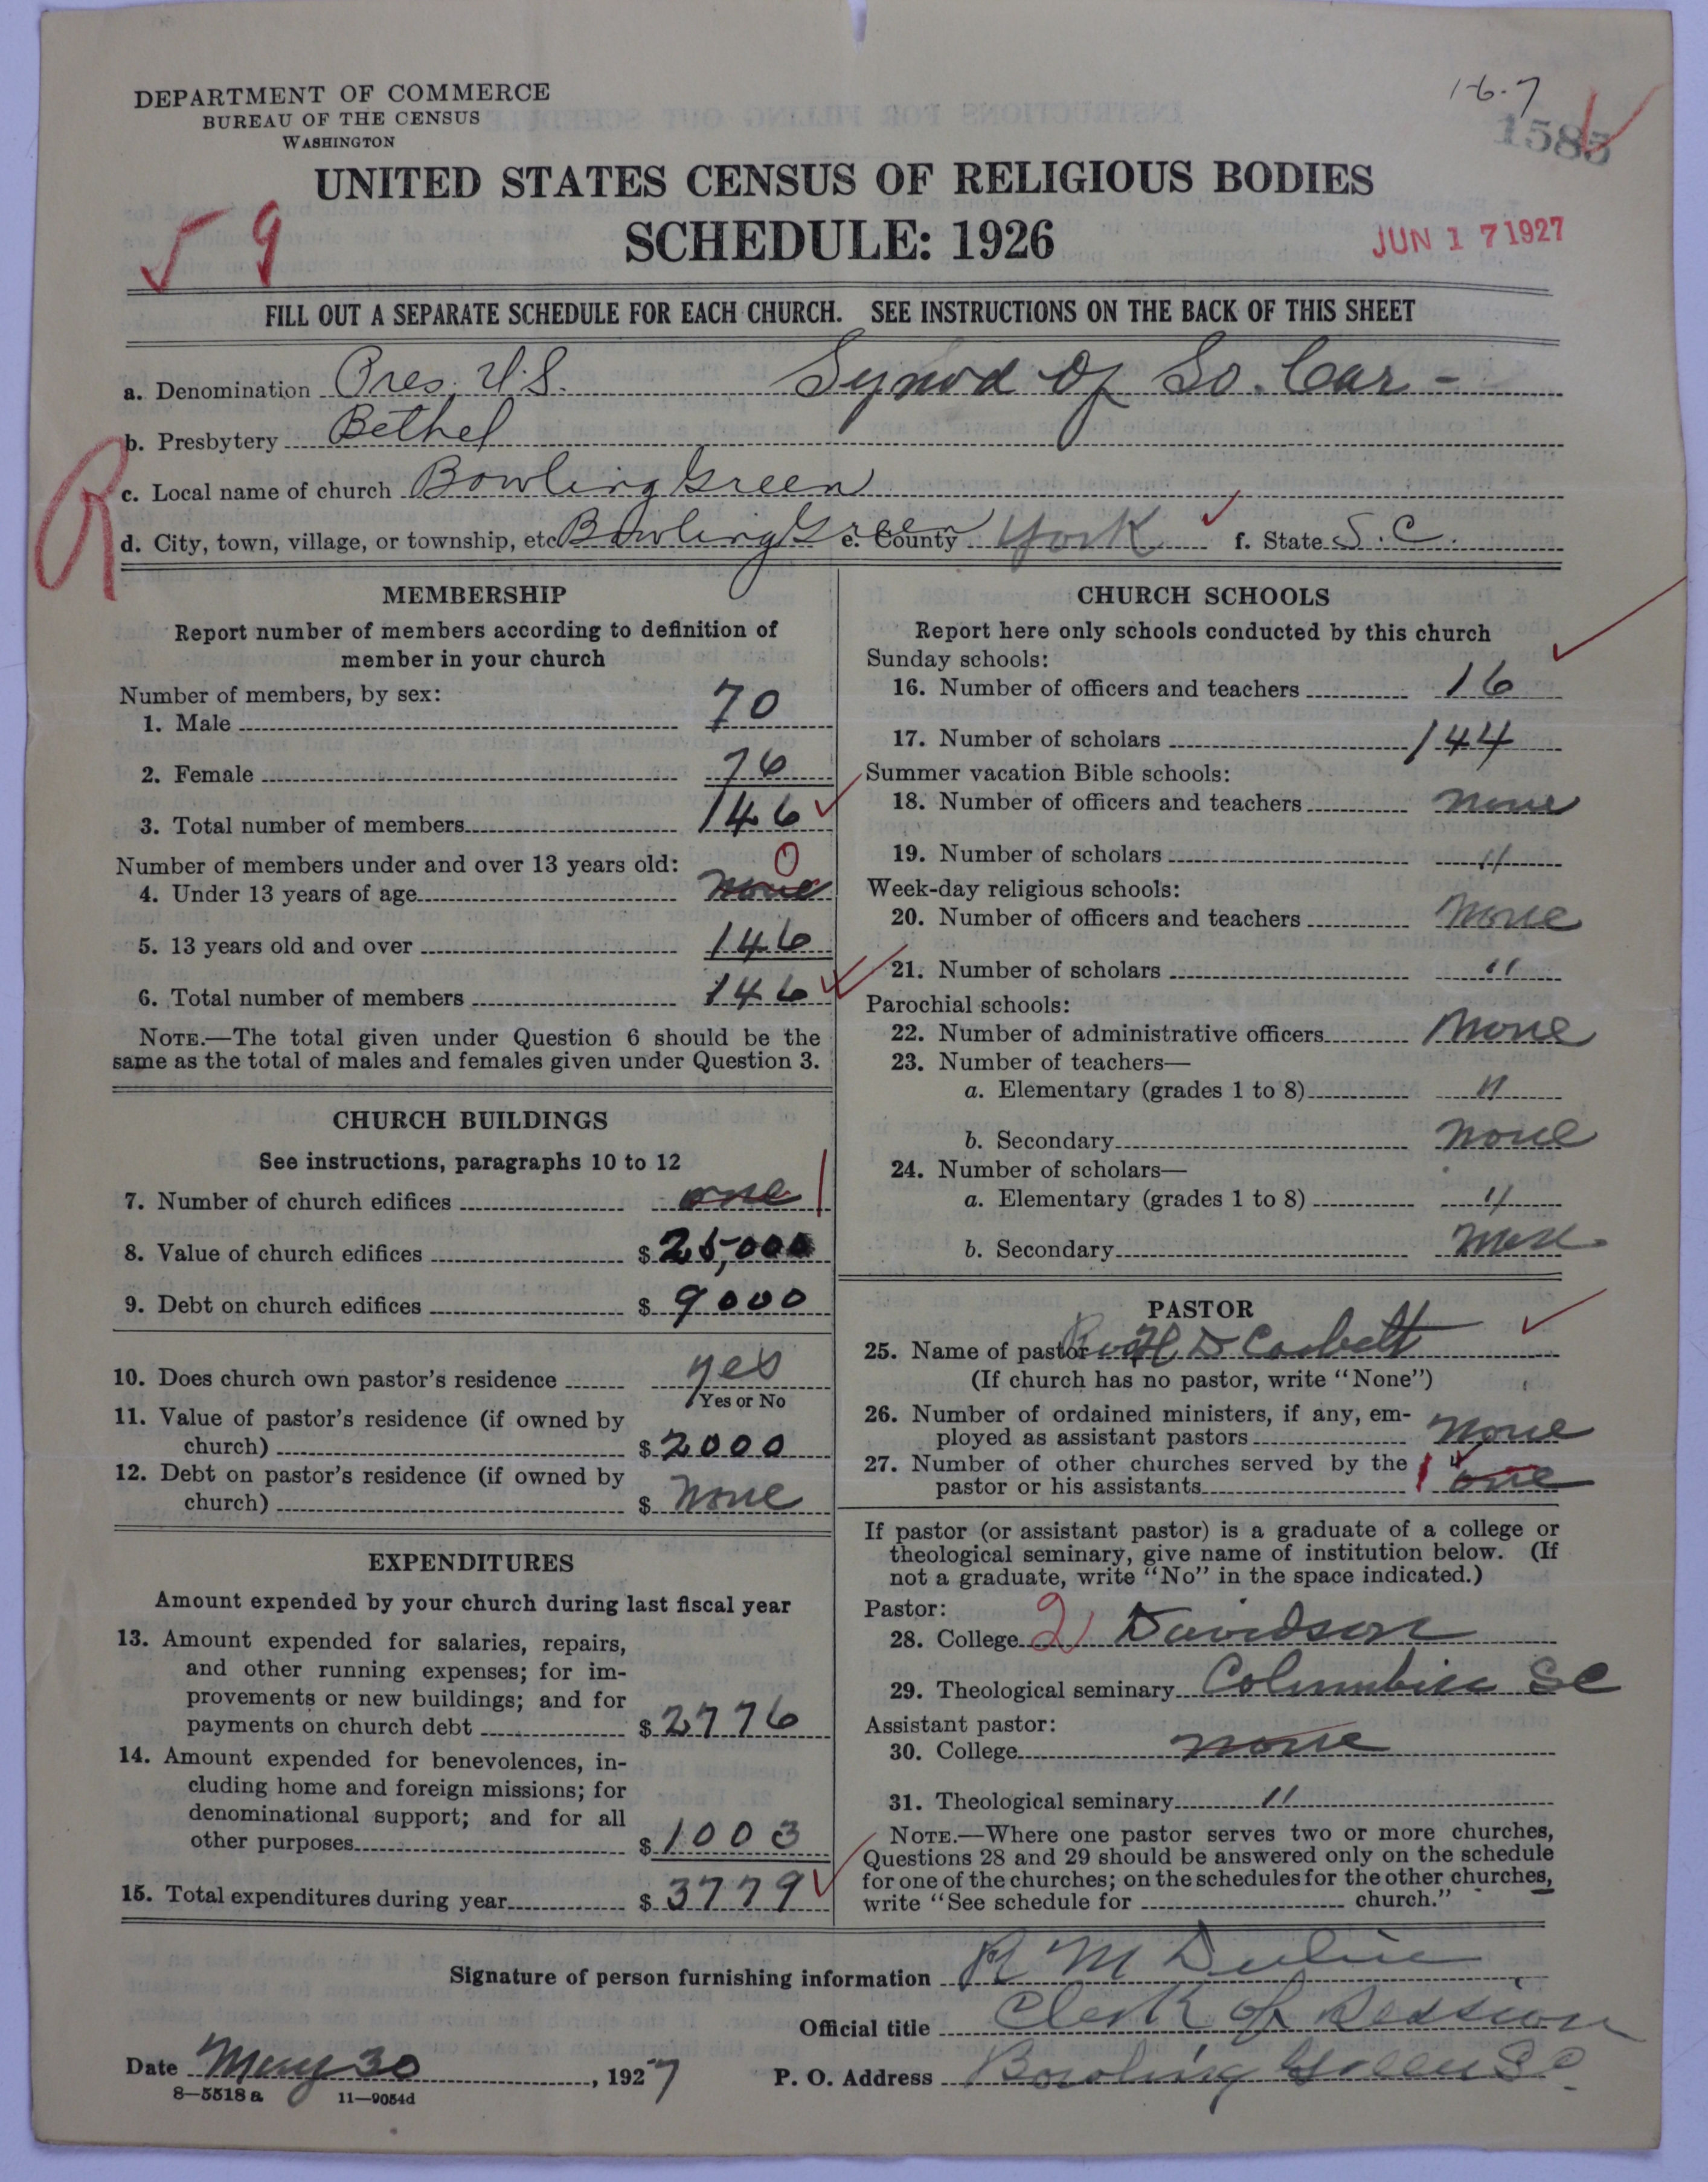 DEPARTMENT OF COMMERCE
BUREAU OF THE CENSUS
WASHINGTON
1-6-7
1585
UNITED STATES CENSUS OF RELIGIOUS BODIES
SCHEDULE: 1926
9
JUN 17 1927
FILL OUT A SEPARATE SCHEDULE FOR EACH CHURCH. SEE INSTRUCTIONS ON THE BACK OF THIS SHEET
a. Denomination Pres. U.S. Synod of So. Car-
b. Presbytery Bethel
R
c. Local name of church Bowling Green
d. City, town, village, or township, etc Bowling Green e. County York f. State S.C.
MEMBERSHIP
Report number of members according to definition of
member in your church
Number of members, by sex:
1. Male 70
2. Female 76
3. Total number of members 146
Number of members under and over 13 years old: 0
4. Under 13 years of age none
5. 13 years old and over 146
6. Total number of members 146
NOTE.—The total given under Question 6 should be the
same as the total of males and females given under Question 3.
CHURCH BUILDINGS
See instructions, paragraphs 10 to 12
7. Number of church edifices one 1
8. Value of church edifices $ 25,000
9. Debt on church edifices $ 9000
10. Does church own pastor's residence yes
Yes or No
11. Value of pastor's residence (if owned by
church) $ 2000
12. Debt on pastor's residence (if owned by
church) $ None
EXPENDITURES
Amount expended by your church during last fiscal year
13. Amount expended for salaries, repairs,
and other running expenses; for im-
provements or new buildings; and for
payments on church debt $ 2776
14. Amount expended for benevolences, in-
cluding home and foreign missions; for
denominational support; and for all
other purposes $ 1003
15. Total expenditures during year $ 3779
CHURCH SCHOOLS
Report here only schools conducted by this church
Sunday schools:
16. Number of officers and teachers 16
17. Number of scholars 144
Summer vacation Bible schools:
18. Number of officers and teachers none
19. Number of scholars "
Week-day religious schools:
20. Number of officers and teachers None
21. Number of scholars "
Parochial schools:
22. Number of administrative officers None
23. Number of teachers—
a. Elementary (grades 1 to 8) "
b. Secondary None
24. Number of scholars—
a. Elementary (grades 1 to 8) "
b. Secondary None
PASTOR
25. Name of pastor Rev H D
(If church has no pastor, write "None")
26. Number of ordained ministers, if any, em-
ployed as assistant pastors None
27. Number of other churches served by the
pastor or his assistants 1 one
If pastor (or assistant pastor) is a graduate of a college or
theological seminary, give name of institution below. (If
not a graduate, write "No" in the space indicated.)
Pastor:
28. College 2 Davidson
29. Theological seminary Columbia SC
Assistant pastor:
30. College none
31. Theological seminary "
NOTE.—Where one pastor serves two or more churches,
Questions 28 and 29 should be answered only on the schedule
for one of the churches; on the schedules for the other churches,
write "See schedule for church."
Signature of person furnishing information R M
Official title Clerk of Session
Date May 30, 1927 P. O. Address Bowling Green S.C.
8—5518 a 11—9054d